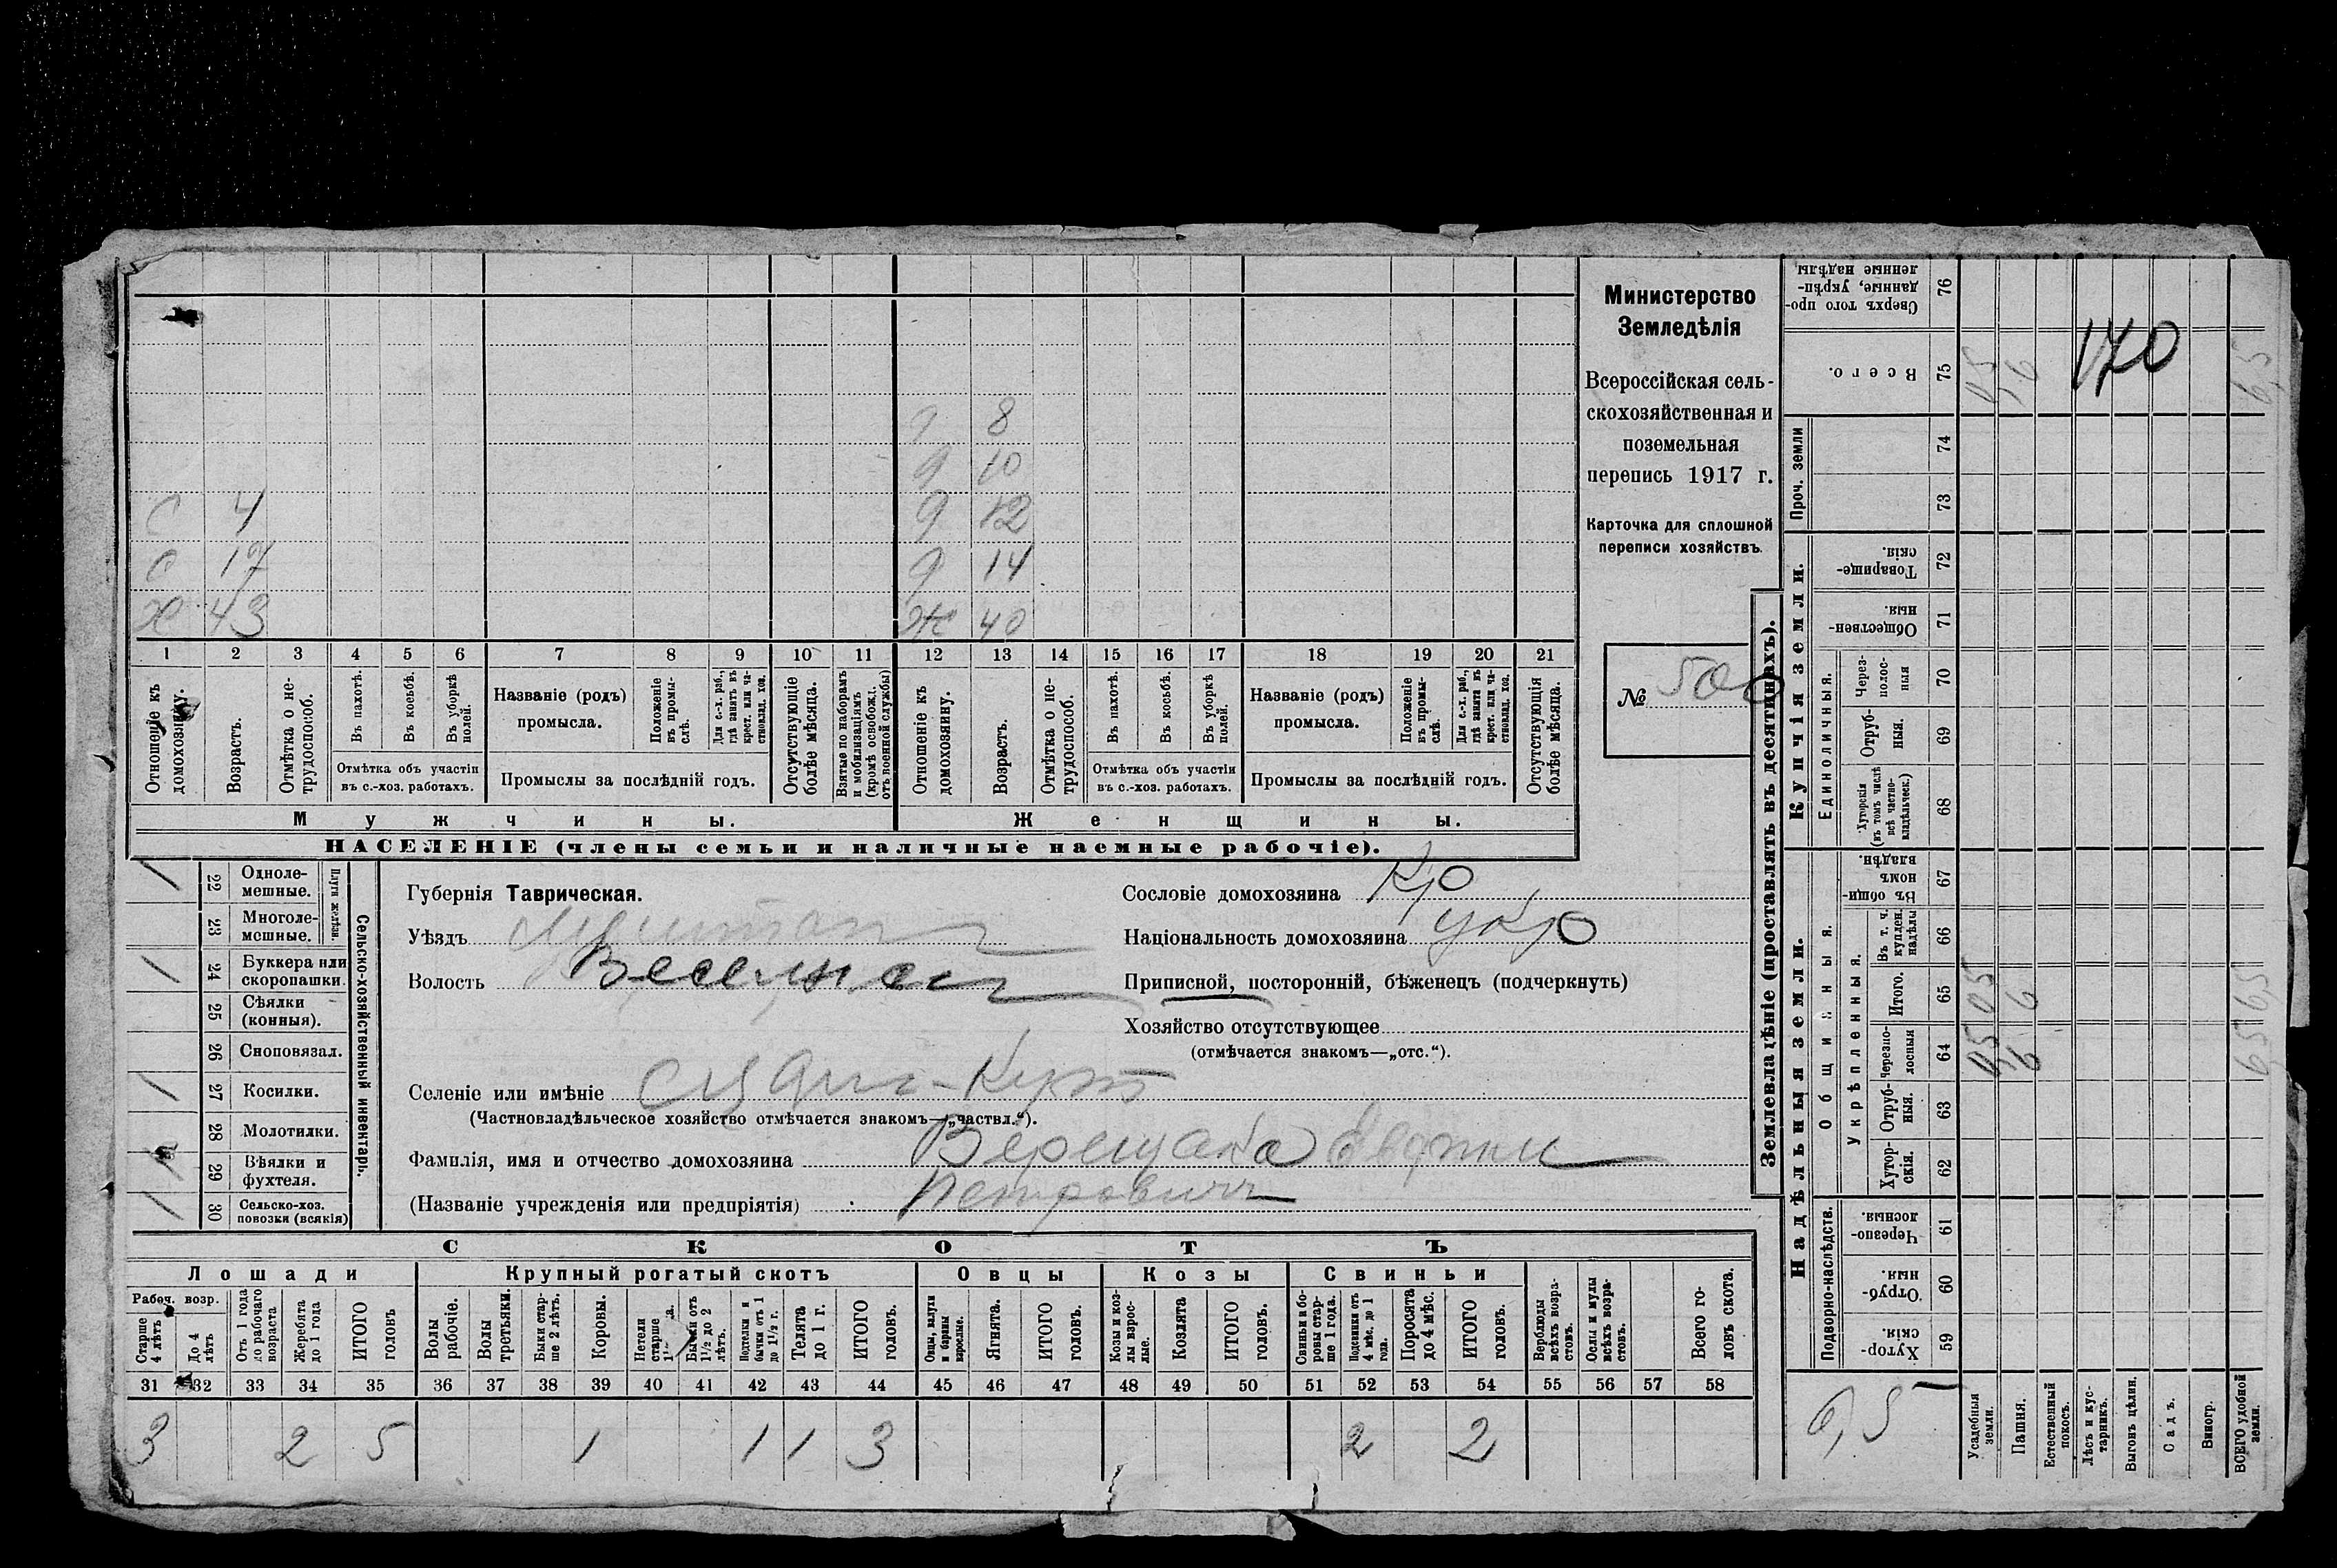 Министерство
Земледѣлія
Всероссійская сель-
скохозяйственная и
поземельная
перепись 1917 г.
Карточка для сплошной
переписи хозяйствъ.
№ 500
д 8
д 10
С 4 д 12
С 17 д 14
Х 43 Ж 40
1 2 3 4 5 6 7 8 9 10 11 12 13 14 15 16 17 18 19 20 21
Отношеніе къ домохозяину.
Возрастъ.
Отмѣтка о не-трудоспособ.
Въ пахотѣ.
Въ косьбѣ.
Въ уборкѣ полей.
Отмѣтка объ участіи
въ с.-хоз. работахъ.
Названіе (родъ)
промысла.
Положеніе въ промы-слѣ.
Для с.-х. раб., гдѣ занятъ въ крест. или ча-стновлад. хоз.
Промыслы за послѣдній годъ.
Отсутствующіе болѣе мѣсяца.
Взятые по наборамъ и мобилизаціямъ (кромѣ освобожд. отъ военной службы)
Отношеніе къ домохозяину.
Возрастъ.
Отмѣтка о не-трудоспособ.
Въ пахотѣ.
Въ косьбѣ.
Въ уборкѣ полей.
Отмѣтка объ участіи
въ с.-хоз. работахъ.
Названіе (родъ)
промысла.
Положеніе въ промы-слѣ.
Для с.-х. раб., гдѣ занята въ крест. или ча-стновлад. хоз.
Промыслы за послѣдній годъ.
Отсутствующія болѣе мѣсяца.
Мужчины. Женщины.
НАСЕЛЕНІЕ (члены семьи и наличные наемные рабочіе).
1 22 Одноле-мешные.
23 Многоле-мешные.
Плуги желѣзн.
1 24 Буккера или скоропашки.
25 Сѣялки (конныя).
26 Сноповязал.
1 27 Косилки.
28 Молотилки.
1 29 Вѣялки и фухтеля.
1 30 Сельско-хоз. повозки (всякія)
Сельско-хозяйственный инвентарь.
Губернія Таврическая.
Уѣздъ
Волость
Селеніе или имѣніе
(Частновладѣльческое хозяйство отмѣчается знакомъ—„частвл.“).
Фамилія, имя и отчество домохозяина Верещака
(Названіе учрежденія или предпріятія) Петрович
Сословіе домохозяина Кр
Національность домохозяина укр
Приписной, посторонній, бѣженецъ (подчеркнуть)
Хозяйство отсутствующее
(отмѣчается знакомъ—„отс.“).
СКОТЪ
Лошади Крупный рогатый скотъ Овцы Козы Свиньи
Рабоч. возр.
Старше 4 лѣтъ
До 4 лѣтъ
Отъ 1 года до рабочаго возраста
Жеребята до 1 года
ИТОГО головъ
Волы рабочіе.
Волы третьяки.
Быки стар-ше 2 лѣтъ.
Коровы.
Нетели старше
Бычки отъ 1½ до 2 лѣтъ.
Подтелки и бычки отъ 1 до 1½ г.
Телята до 1 г.
ИТОГО головъ.
Овцы, валухи и бараны взрослые.
Ягнята.
ИТОГО головъ.
Козы и коз-лы взрос-лые.
Козлята
ИТОГО головъ.
Свиньи и бо-ровы стар-ше 1 года.
Подсвинки отъ 4 мѣс. до 1 года.
Поросята до 4 мѣс.
ИТОГО головъ.
Верблюды всѣхъ возра-стовъ.
Ослы и мулы всѣхъ возра-стовъ.
Всего го-ловъ скота.
31 32 33 34 35 36 37 38 39 40 41 42 43 44 45 46 47 48 49 50 51 52 53 54 55 56 57 58
3 2 5 1 1 1 3 2 2
Землевладѣніе (проставлять въ десятинахъ).
Надѣльныя земли. Купчія земли.
Подворно-наслѣдств.
Общинныя.
Укрѣпленныя.
Единоличныя.
Проч. земли
Хутор-скія. 59
Отруб-ныя. 60
Черезпо-лосныя. 61
Хутор-скія. 62
Отруб-ныя. 63
Черезпо-лосныя 64
Итого. 65
Въ т. ч. купден. надѣлы 66
Въ общи-номъ владѣн. 67
Хуторскія (въ томъ числѣ всѣ частно-владѣльческ.) 68
Отруб-ныя. 69
Через-полос-ныя 70
Обществен-ныя. 71
Товарище-скія. 72
73
74
Всего. 75
Сверхъ того про-данные, укрѣп-ленные надѣлы 76
170
6,5
Усадебныя земли. 05 05 05
Пашня. 6 6 6
Естественный покосъ.
Лѣсъ и кус-тарникъ.
Выгонъ цѣлин.
Садъ.
Виногр.
ВСЕГО удобной земли. 65 65 65